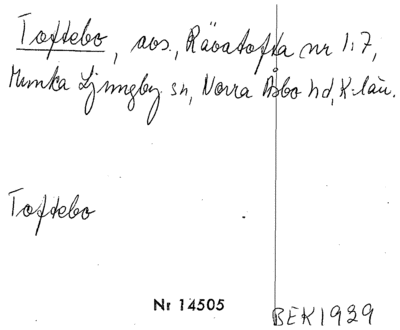 Toftebo, avs., Rävatofta nr 1:7,
Munka Ljungby sn, Norra Åsbo hd, K-län.
Toftebo
Nr 14505
BEK1929